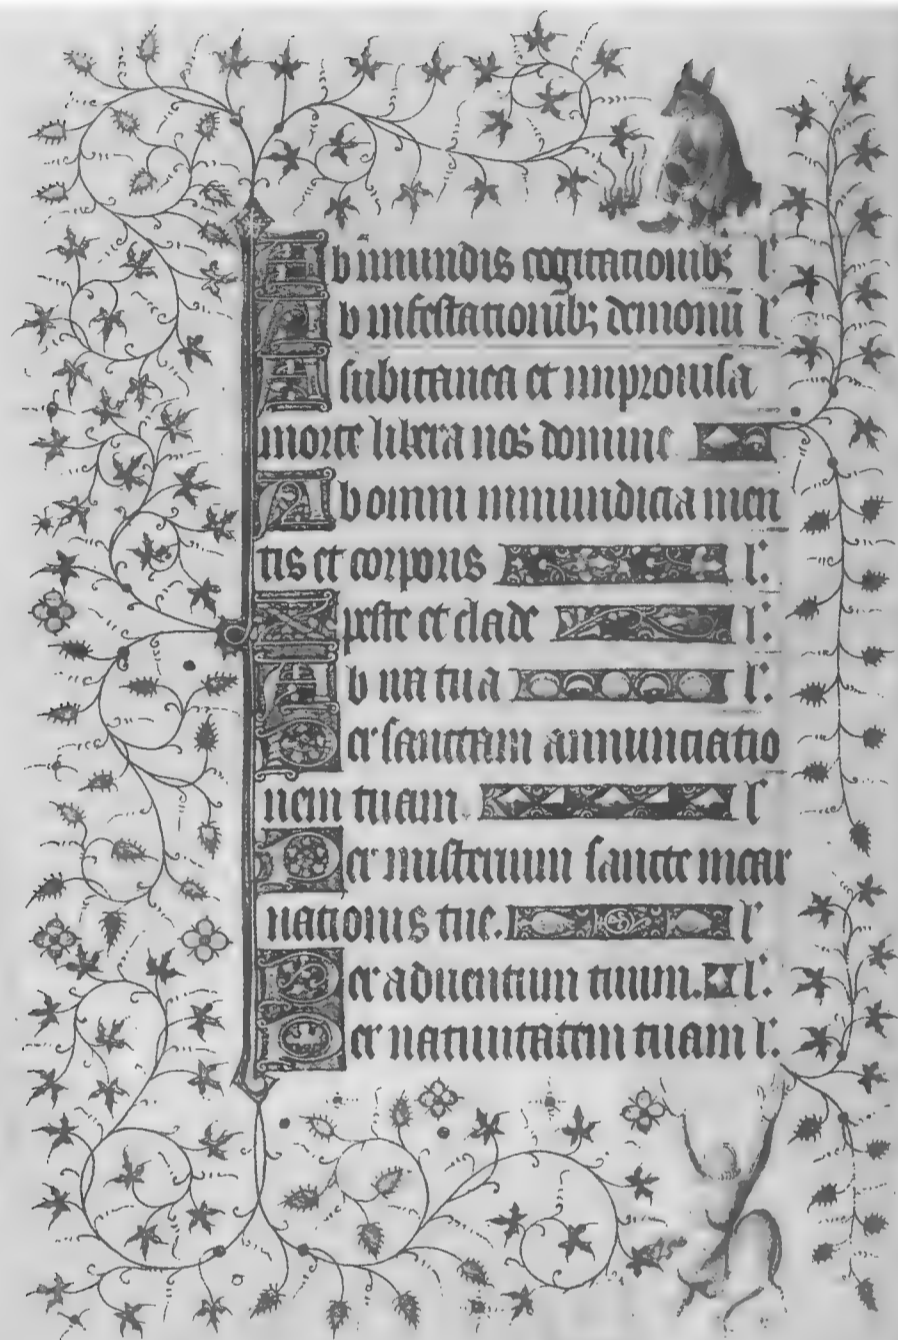 Ab inmundis cogitationib; l'
Ab infestationib; demoniū l'
A subitanea et improuisa
morte libera nos domine
Ab omni inmundicia men
tis et corporis l'.
A peste et clade l'.
Ab ira tua l'.
Per sanctam annunciatio
nem tuam. l'
Per misterium sancte incar
nationis tue. l'
Per aduentum tuum. l'.
Per natiuitatem tuam l'.